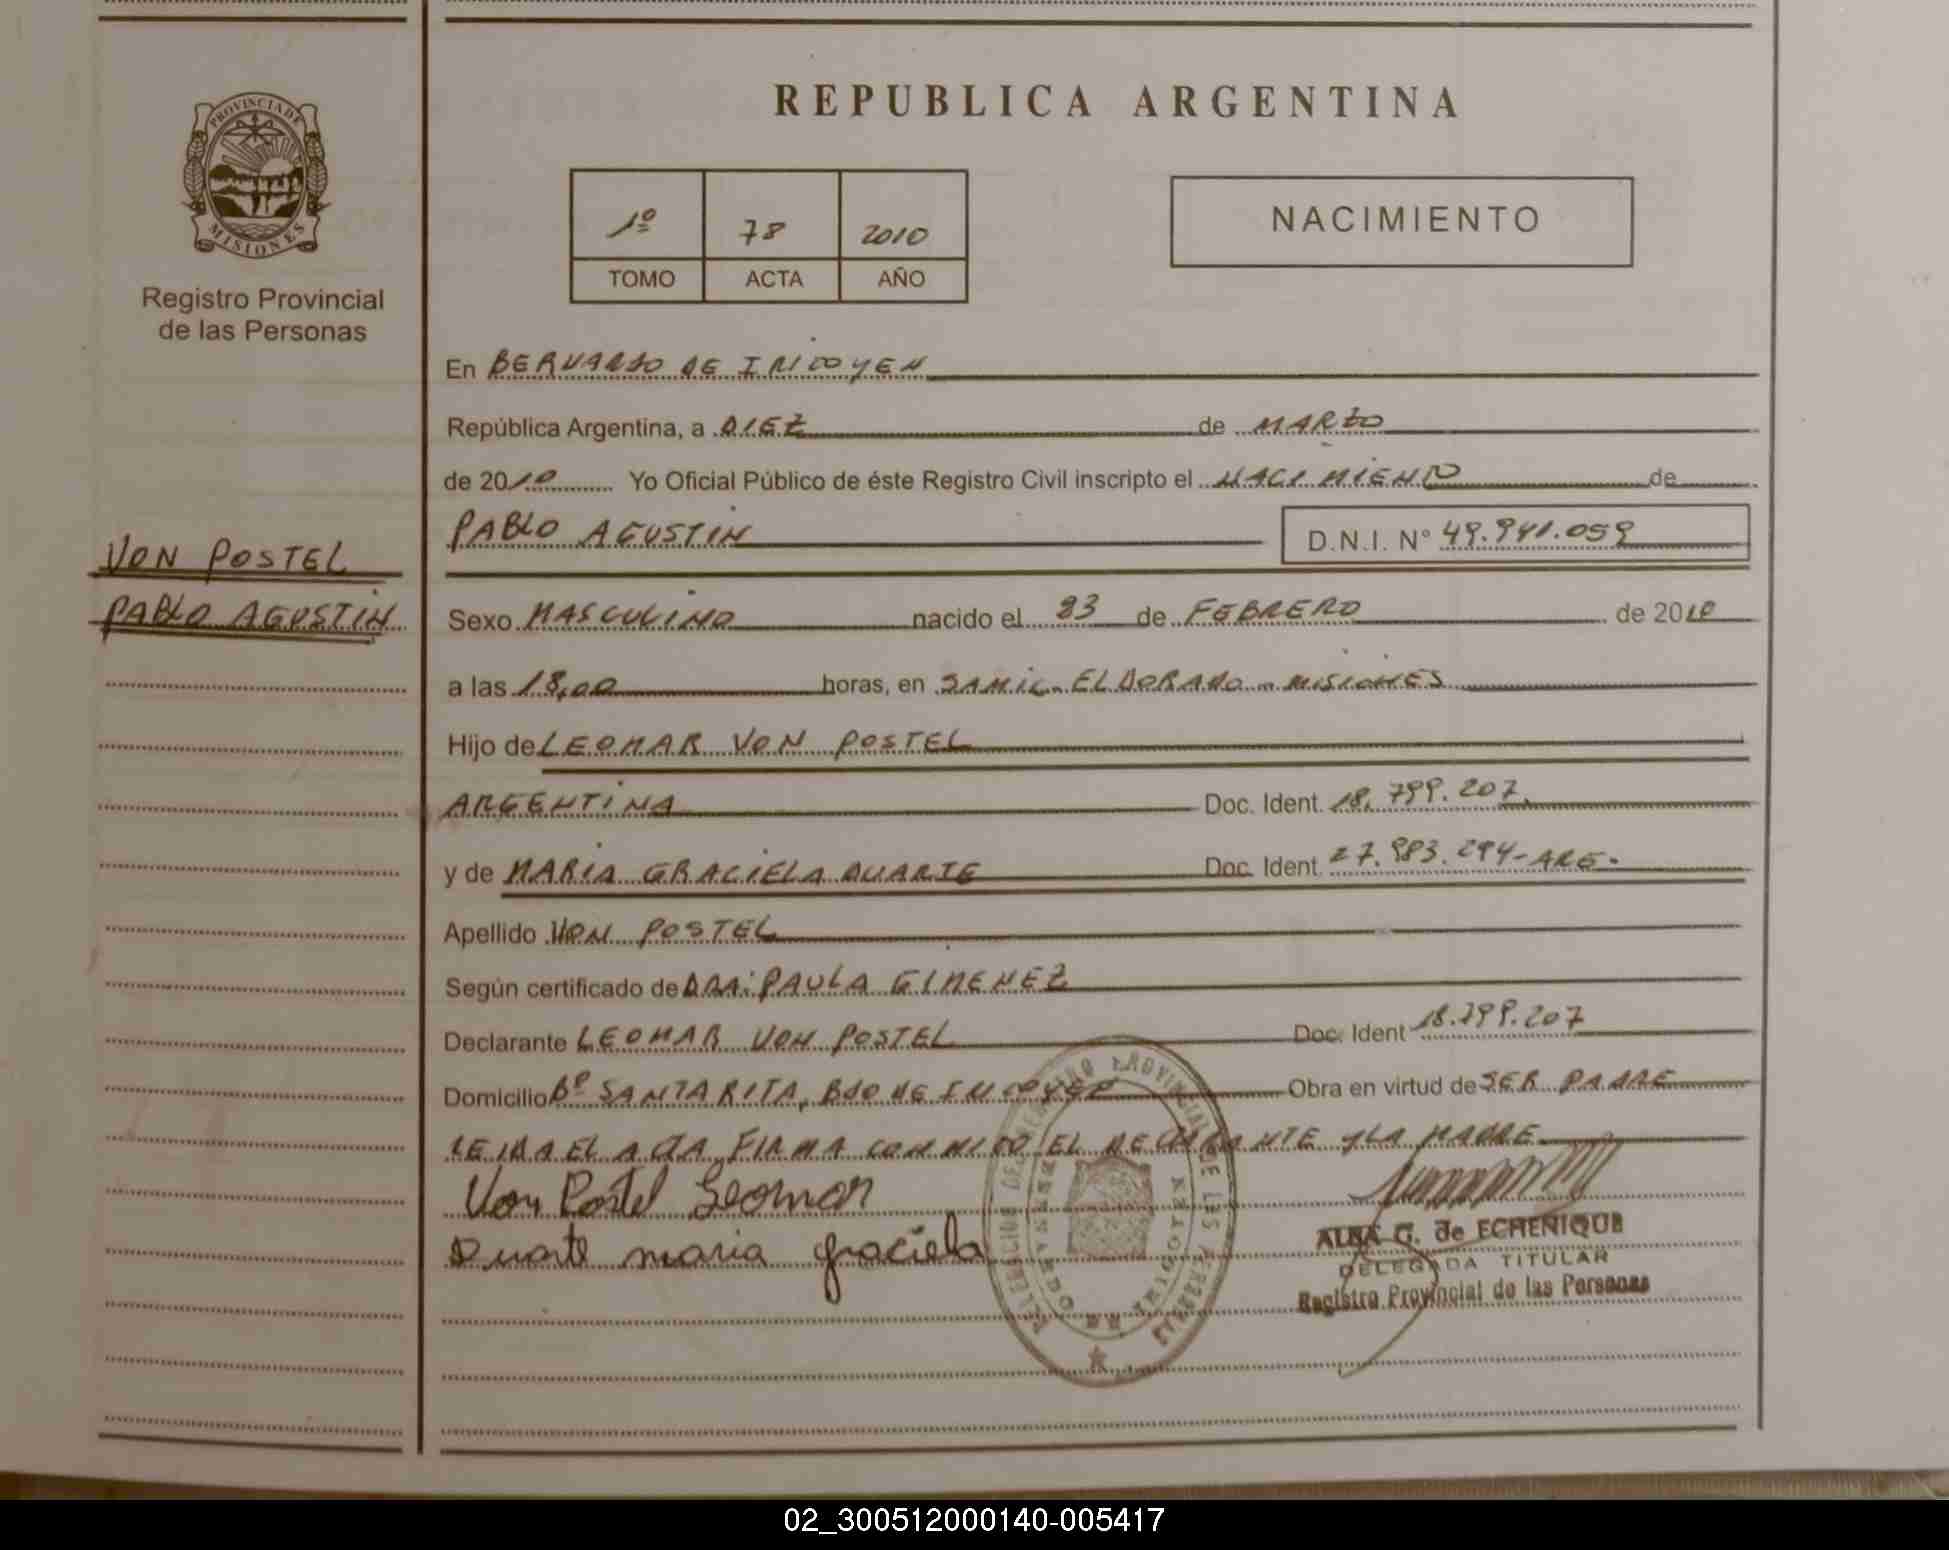 REPUBLICA ARGENTINA
PROVINCIA DE
MISIONES
Registro Provincial
de las Personas
1º 78 2010
TOMO ACTA AÑO
NACIMIENTO
En BERNARDO DE IRIGOYEN
República Argentina, a DIEZ de MARZO
de 2010 Yo Oficial Público de éste Registro Civil inscripto el NACIMIENTO de
PABLO AGUSTIN D.N.I. Nº 49.941.059
VON POSTEL
PABLO AGUSTIN
Sexo MASCULINO nacido el 23 de FEBRERO de 2010
a las 18,00 horas, en SAMIC - ELDORADO - MISIONES
Hijo de LEOMAR VON POSTEL
ARGENTINA Doc. Ident. 18.799.207
y de MARIA GRACIELA DUARTE Doc. Ident. 27.983.294-ARG-
Apellido VON POSTEL
Según certificado de DRA: PAULA GIMENEZ
Declarante LEOMAR VON POSTEL Doc. Ident 18.799.207
Domicilio Bº SANTA RITA, BDO DE IRIGOYEN Obra en virtud de SER PADRE
LEIDA EL ACTA FIRMA CONMIGO EL DECLARANTE Y LA MADRE
Von Postel Leomar
Duarte maria graciela
ALBA G. de ECHENIQUE
DELEGADA TITULAR
Registro Provincial de las Personas
02_300512000140-005417